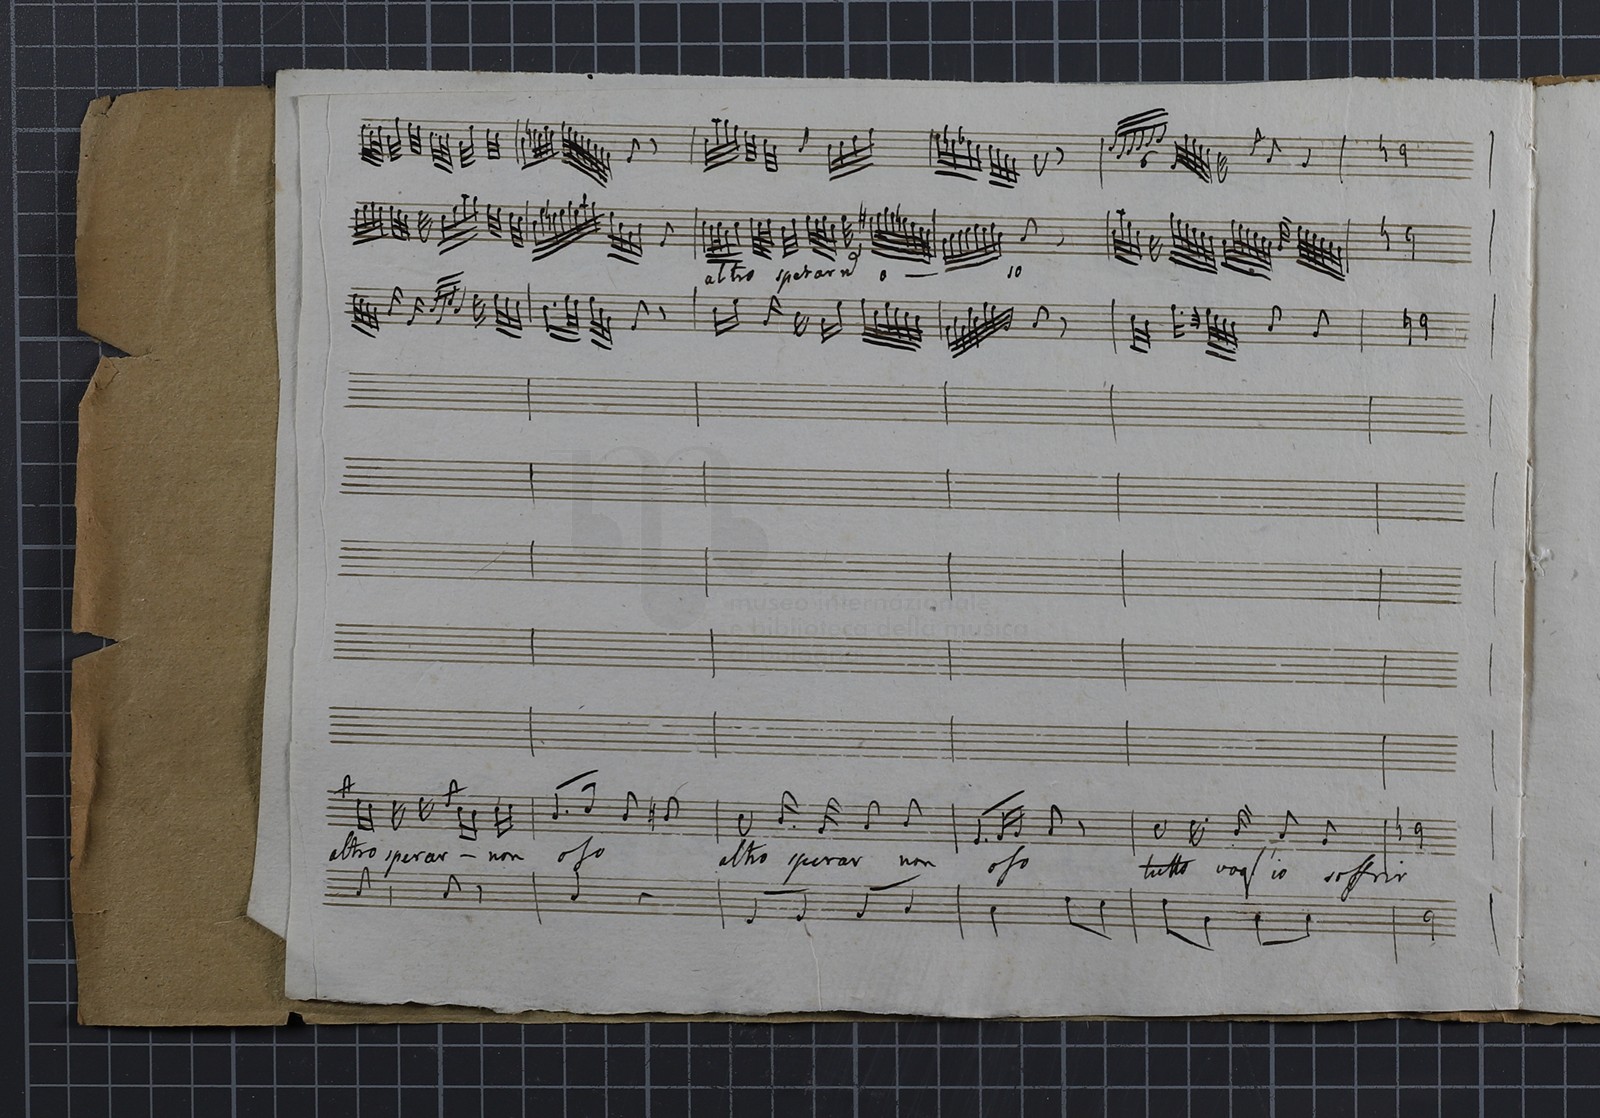 altro sperar n o — so
museo internazionale
e biblioteca della musica
altro sperar - non oso altro sperar non oso tutto vogl'io soffrir